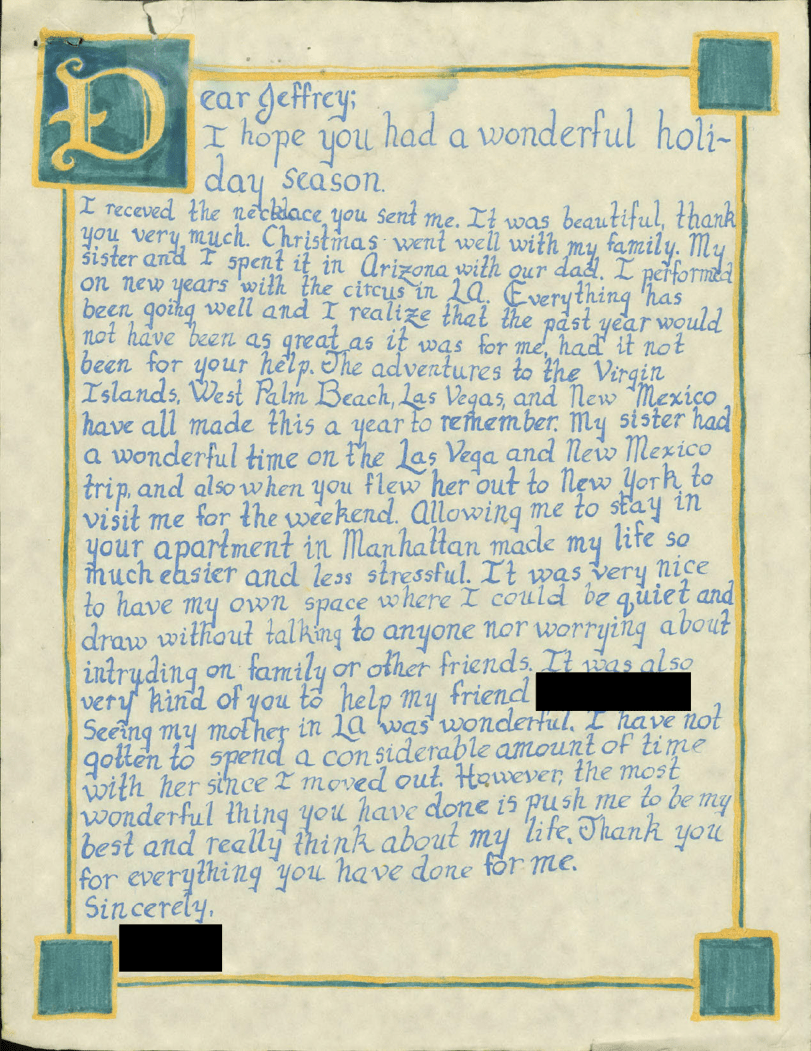 Dear Jeffrey;
I hope you had a wonderful holi-
day season.
I receved the necklace you sent me. It was beautiful, thank
you very much. Christmas went well with my family. My
sister and I spent it in Arizona with our dad. I performed
on new years with the circus in LA. Everything has
been going well and I realize that the past year would
not have been as great as it was for me, had it not
been for your help. The adventures to the Virgin
Islands, West Palm Beach, Las Vegas, and New Mexico
have all made this a year to remember. My sister had
a wonderful time on the Las Vega and New Mexico
trip, and also when you flew her out to New York to
visit me for the weekend. Allowing me to stay in
your apartment in Manhattan made my life so
much easier and less stressful. It was very nice
to have my own space where I could be quiet and
draw without talking to anyone nor worrying about
intryding on family or other friends. It was also
very kind of you to help my friend
Seeing my mother in LA was wonderful. I have not
gotten to spend a considerable amount of time
with her since I moved out. However, the most
wonderful thing you have done is push me to be my
best and really think about my life. Thank you
for everything you have done for me.
Sincerely,